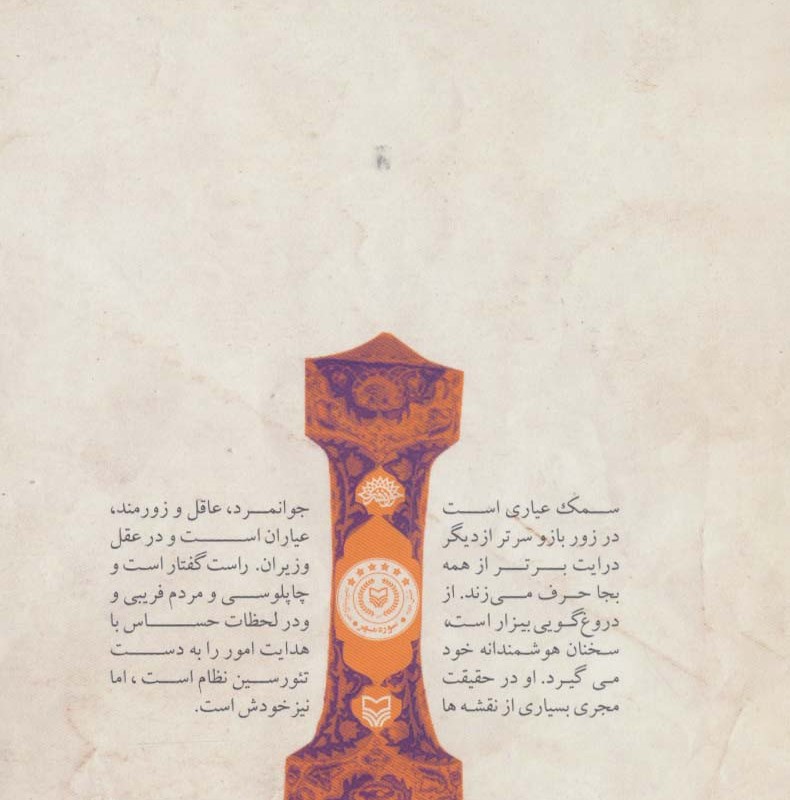 سمک عیاری است جوانمرد، عاقل و زورمند،
در زور بازو سرتر از دیگر عیاران است و در عقل
درایت برتر از همه وزیران. راست گفتار است و
بجا حرف می‌زند. از چاپلوسی و مردم فریبی و
دروغ‌گویی بیزار است، ودر لحظات حساس با
سخنان هوشمندانه خود هدایت امور را به دست
می گیرد. او در حقیقت تئورسین نظام است ، اما
مجری بسیاری از نقشه ها نیز خودش است.
سوره مهر